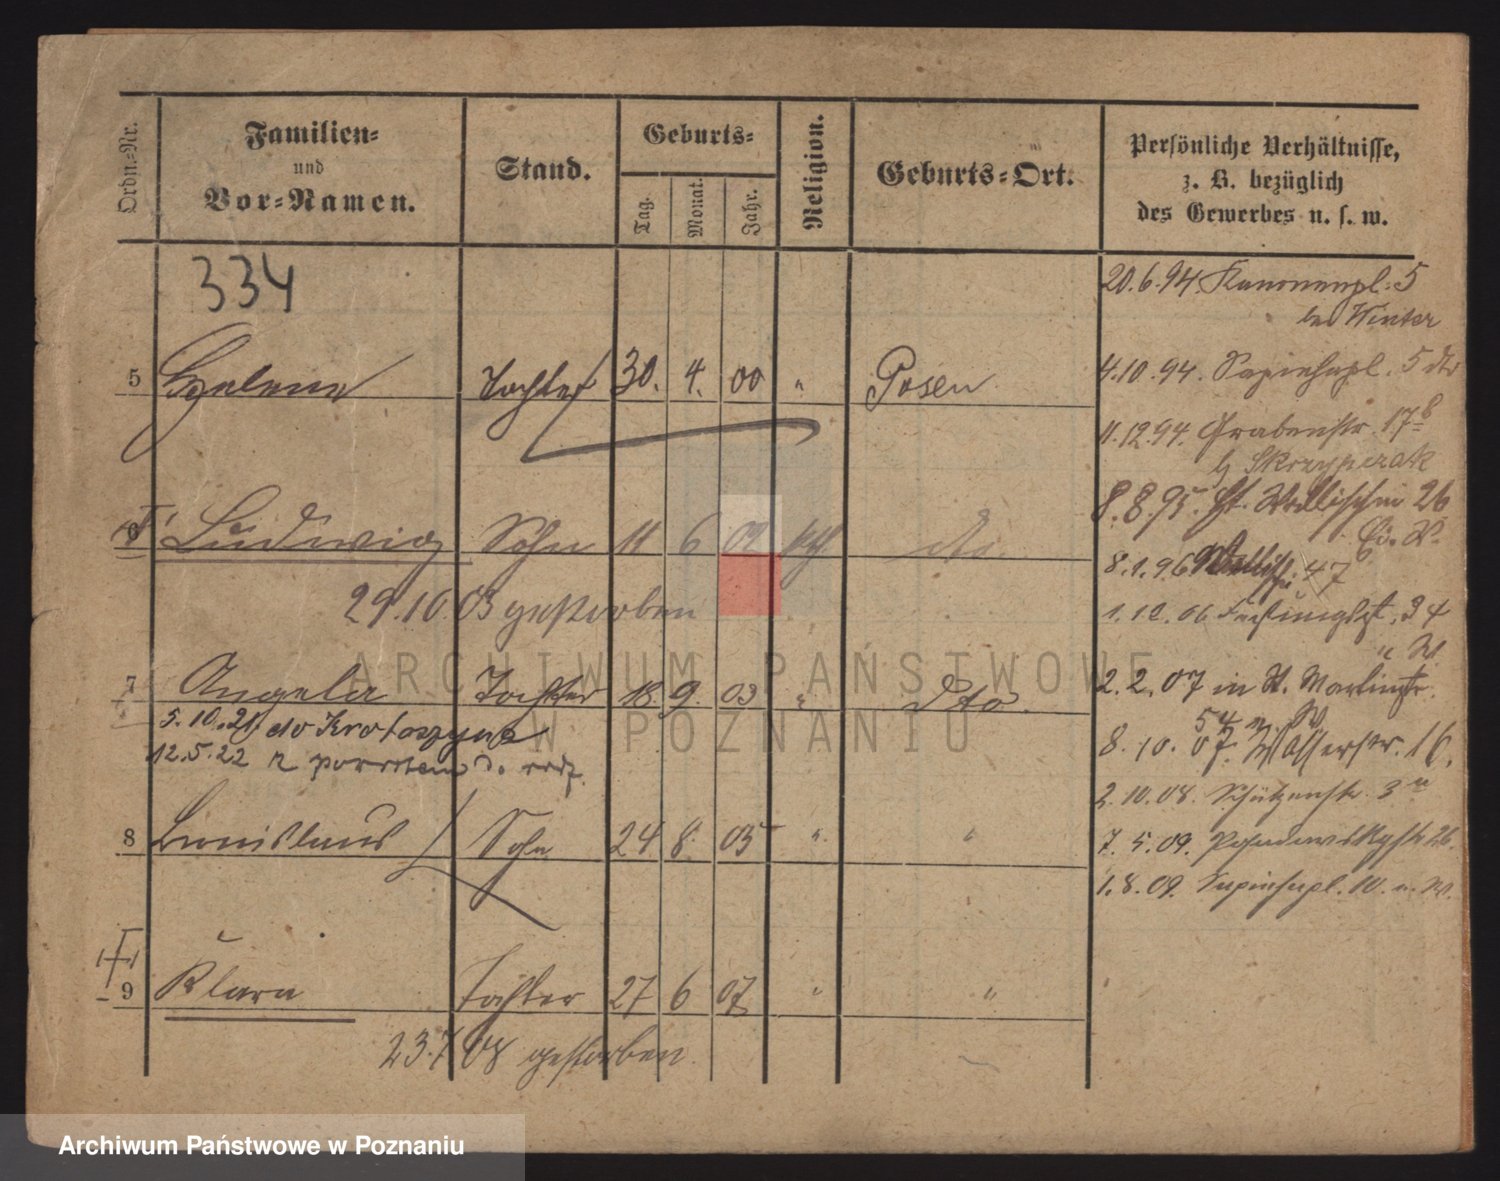 Ordn.-Nr.
Familien-
und
Vor-Namen.
Stand.
Geburts-
Tag.
Monat.
Jahr.
Religion.
Geburts-Ort.
Persönliche Verhältnisse,
z. B. bezüglich
des Gewerbes u. s. w.
334
20.6.94. Kanonenpl. 5
bei Winter
5 Helene Tochter 30. 4. 00 " Posen
4.10.94. Sapiehapl. 5
11.12.94. Grabenstr. 17
b/
8.8.95. 26
6 Ludwig Sohn 11 6 02 kth. dto.
8.1.96 47
29.10.03 gestorben
1.12.06 34
" W.
7 Angela Tochter 18. 9. 03 " dto.
2.2.07 in St. Martinstr.
54
5.10.21 do Krotoszyna
8.10.07. Wasserstr. 16.
12.5.22 z powrotem do
2.10.08. Schützenstr. 3
8 Bronislaus Sohn 24 8. 05 " "
7.5.09. 26.
1.8.09. Sapiehapl. 10.
9 Klara Tochter 27 6 07 " "
23.7.08 gestorben.
ARCHIWUM PAŃSTWOWE
W POZNANIU
Archiwum Państwowe w Poznaniu